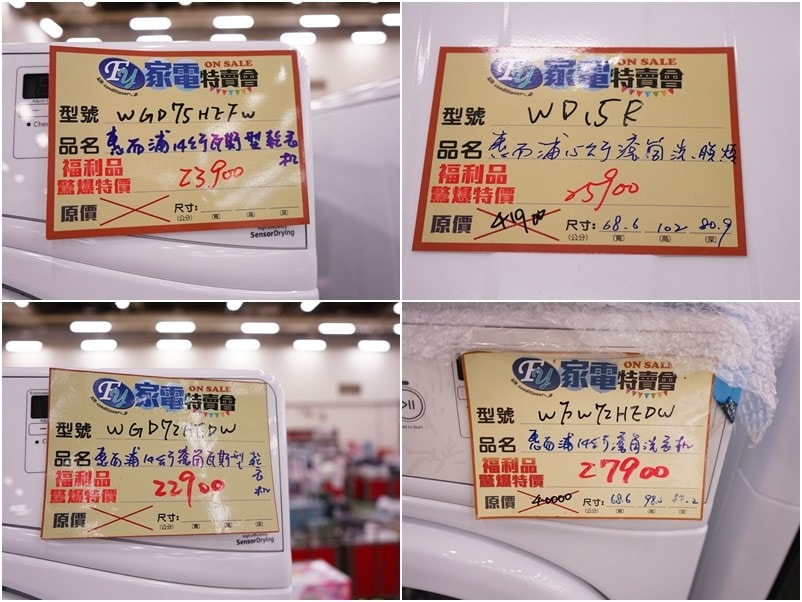 Fu 家電特賣會 ON SALE
型號 WGD75HEFW
品名 惠而浦14公斤瓦斯型乾衣機
福利品
驚爆特價 23900
原價 尺寸:
(公分) (寬) (高) (深)
High Efficiency
SensorDrying
Fu 家電特賣會 ON SALE
air conditioner
型號 WD15R
品名 惠而浦15公斤滾筒洗、脫烘
福利品
驚爆特價 25900
原價 41900 尺寸: 68.6 102 80.9
(公分) (寬) (高) (深)
Fu 家電特賣會 ON SALE
air conditioner
型號 WGD72HEDW
品名 惠而浦14公斤滾筒瓦斯型乾衣機
福利品
驚爆特價 22900
原價 尺寸:
(公分) (寬) (高) (深)
High Efficiency
SensorDrying
Fu 家電特賣會 ON SALE
air conditioner
型號 WFW72HEDW
品名 惠而浦14公斤滾筒洗衣機
福利品
驚爆特價 27900
原價 40000 尺寸: 68.6
(公分) (寬) (高) (深)